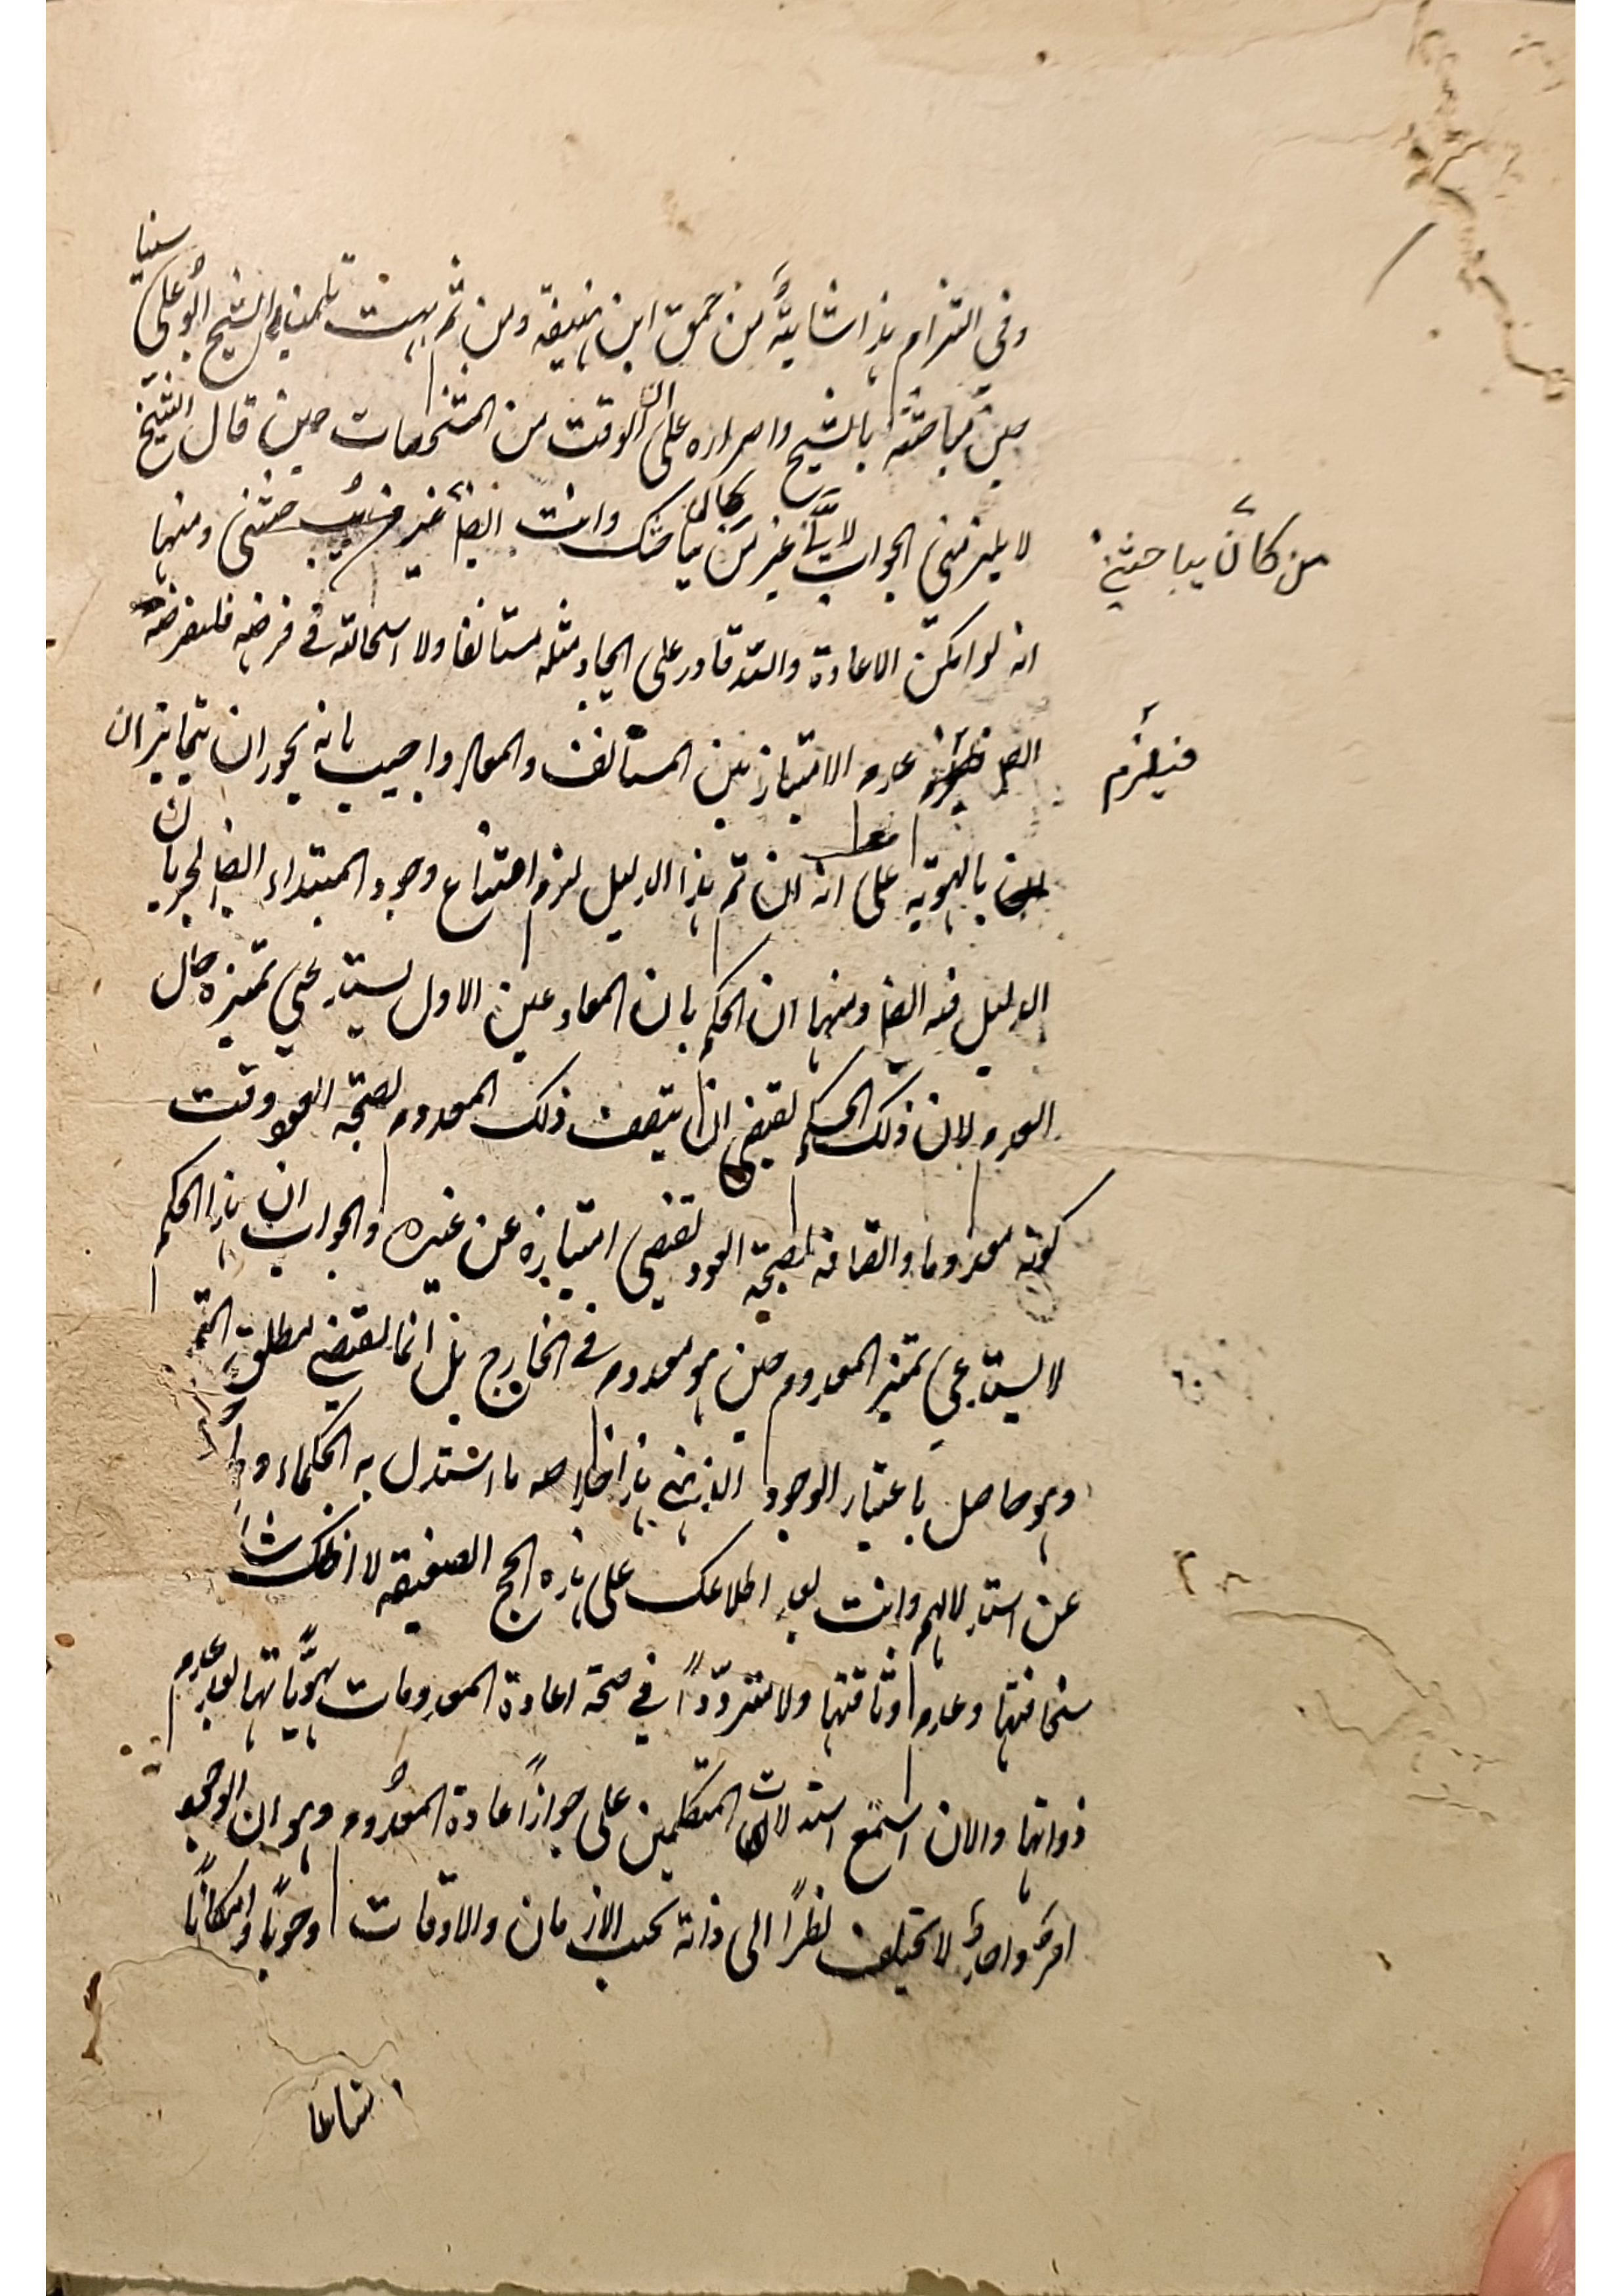 وفي التزام هذا شائبة من حمق ابن هنيقة ومن ثم بهت تلميذ الشيخ ابو علي سينا
حين مباحثته بالشيخ واصراره على ان الوقت من المشخصات حين قال الشيخ
لا يلزمني الجواب لانّي غير من كان يباحثك وانت ايضا غير من يباحثني ومنها
من كان يباحثني
انه لو امكن الاعادة والله قادر على ايجاد مثله مستانفا ولا استحالة في فرضه فلنفرضه
ايضا عدم الامتياز بين المستأنف والمعاد واجيب بانه يجوز ان يتمايزان
فيلزم
بالهوية على انه ان تم هذا الدليل لزم امتناع وجود المبتداء ايضا لجريان
الدليل فيه ايضا ومنها ان الحكم بان المعاد عين الاول يستدعي تميزه حال
العدم لان ذلك الحكم يقتضي ان يتصف ذلك المعدوم بصحة العود وقت
كونه معدوما واتصافه بصحة العود يقتضي امتيازه عن غيره والجواب ان هذا الحكم
لا يستدعي تميز المعدوم حين هو معدوم في الخارج بل انما يقتضي مطلق التميز
وهو حاصل باعتبار الوجود الذهني هذا خلاصه ما استدل به الحكماء
عن استدلالهم وانت بعد اطلاعك على هذه الحجج الضعيفة لا اظنك شاكا
سخافتها وعدم وثاقتها ولا مترددّاً في صحة اعادة المعدومات بهويّاتها بعد عدم
ذواتها والان استمع استدلالات المتكلمين على جواز اعادة المعدوم وهو ان الوجود
امر واحد لا يختلف نظراً الى ذاته بحسب الازمان والاوقات وجوبا وامكانا